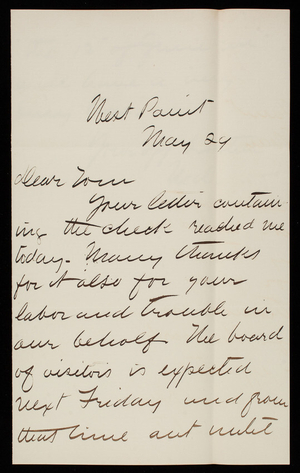 West Point
May 29
Dear Tom
Your letter contain-
ing the check reached me
today. Many thanks
for it also for your
labor and trouble in
our behalf. The board
of visitors is expected
next Friday and from
that time out until